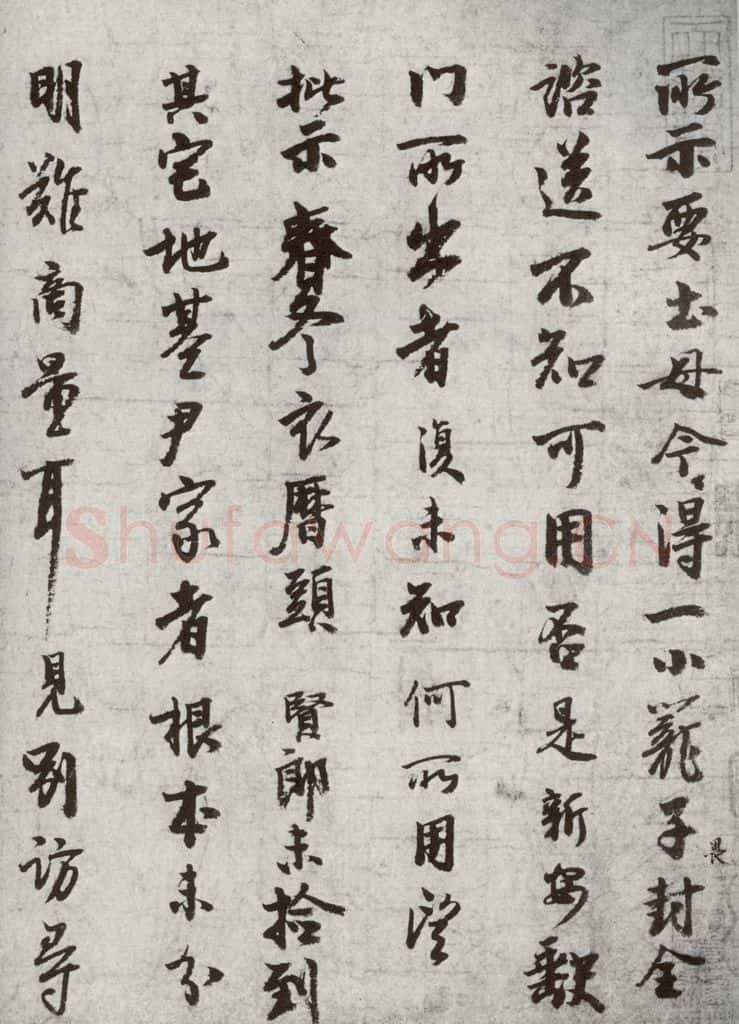 所示要土母今得一小籠子封全
畏
諮送不知可用否是新安缺
門所出者復未知何所用望
批示春冬衣曆頭賢郎未拾到
其宅地基尹家者根本未分
明難商量耳見別訪尋
Shufawang.CN